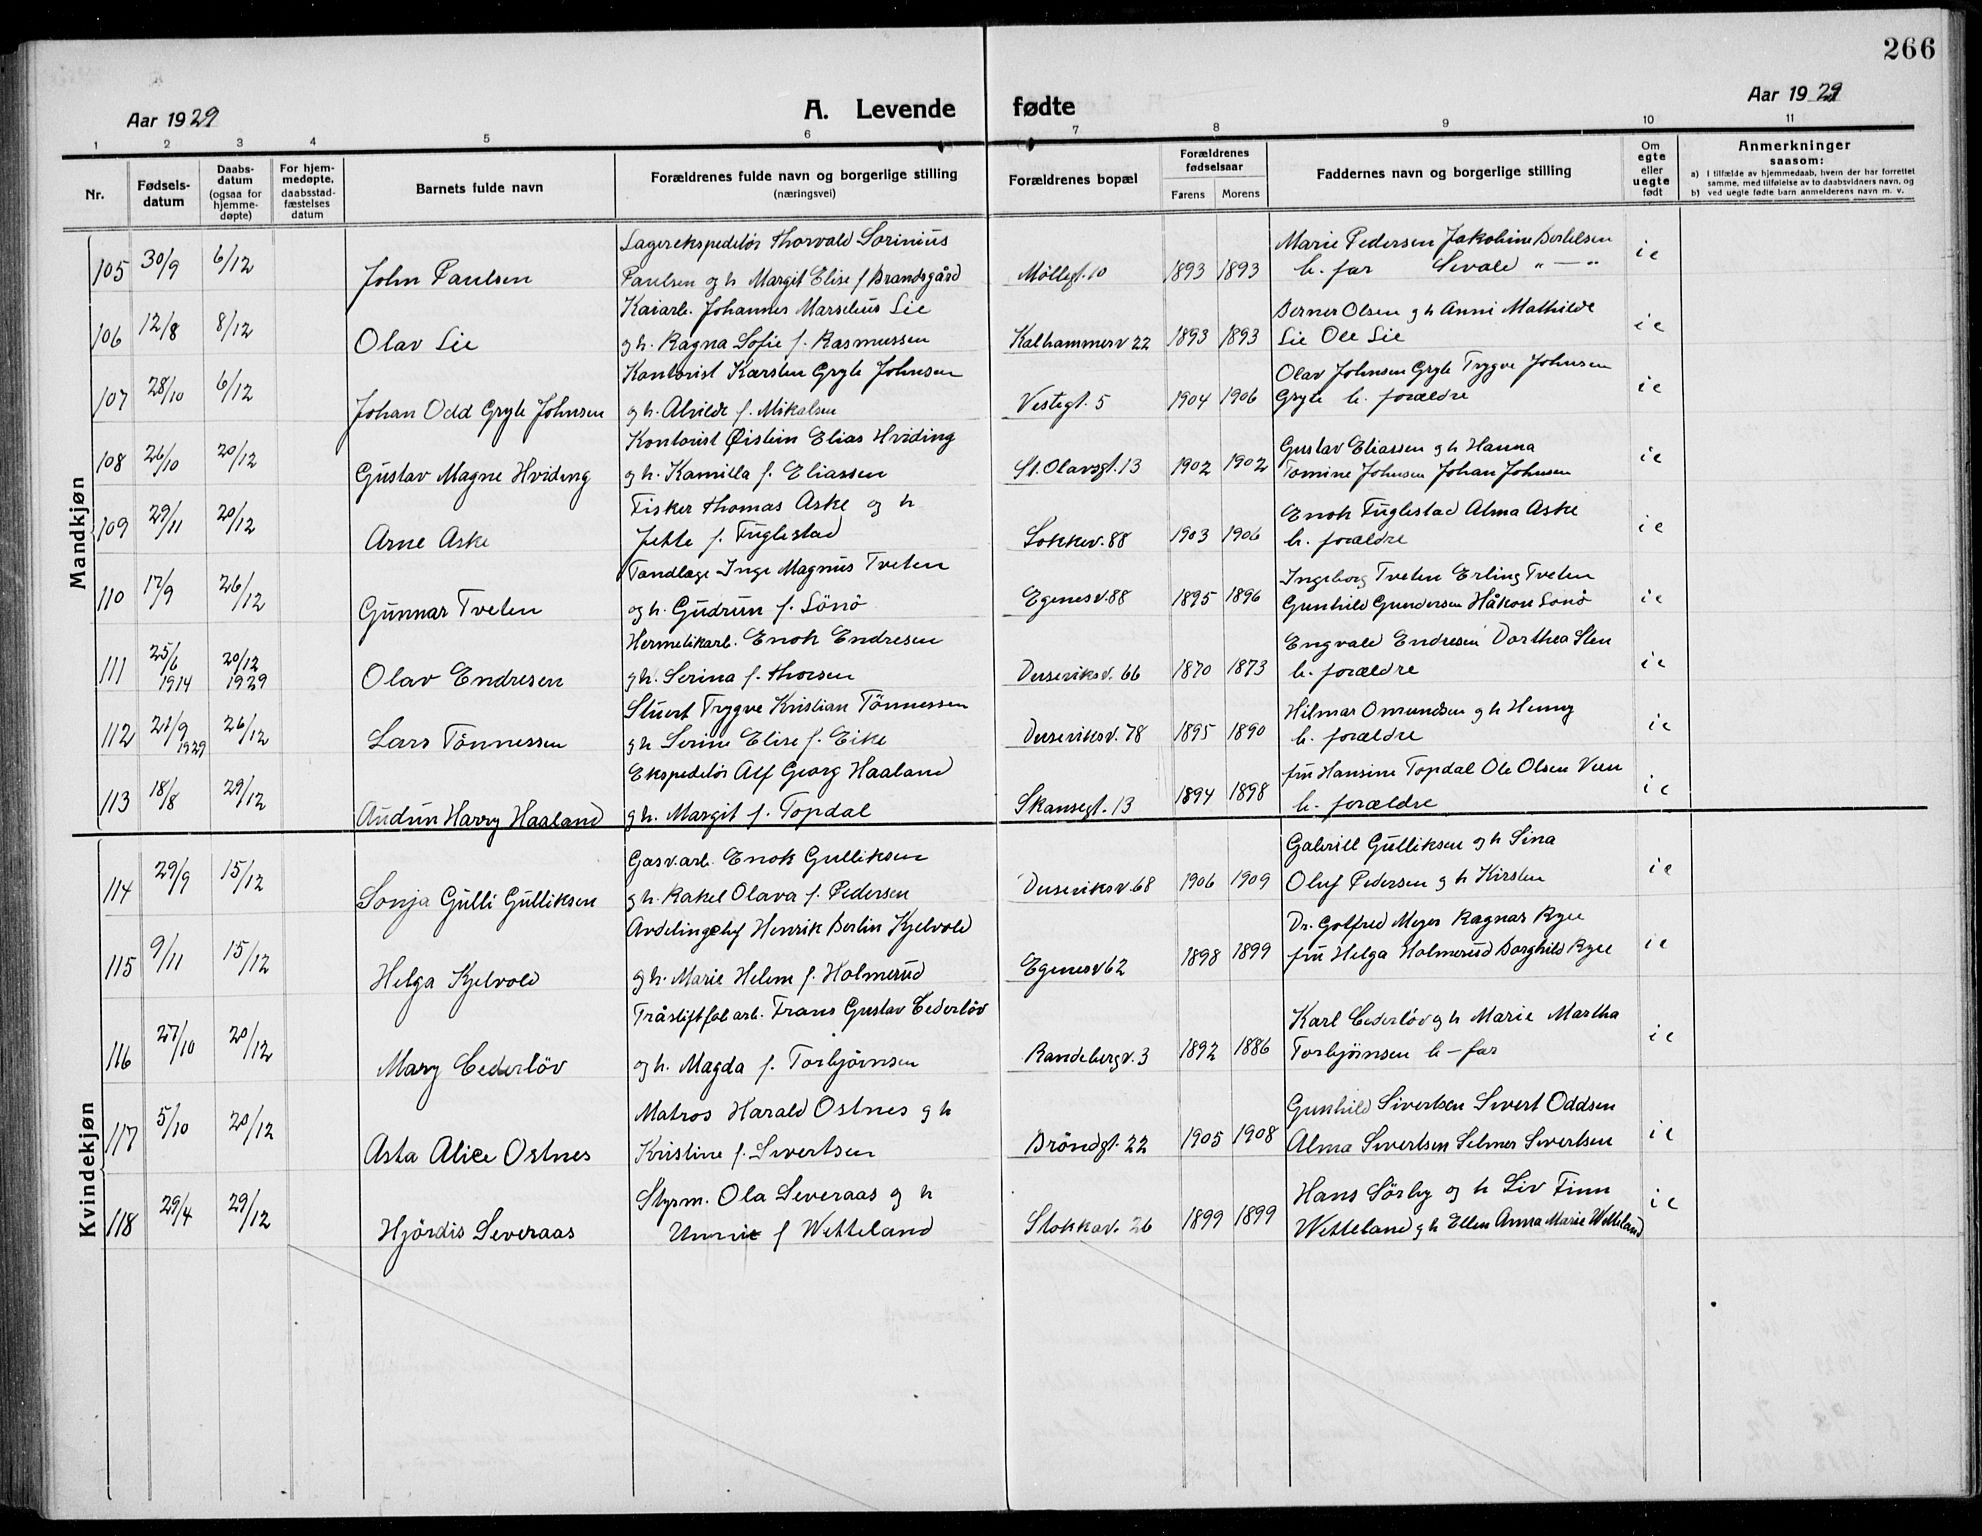 266
Aar 1929
A. Levende fødte
Aar 1929
1 2 3 4 5 6 7 8 9 10 11
Nr.
Fødsels-
datum
Daabs-
datum
(ogsaa for
hjemme-
døpte)
For hjem-
medøpte,
daabsstad-
fæstelses
datum
Barnets fulde navn
Forældrenes fulde navn og borgerlige stilling
(næringsvei)
Forældrenes bopæl
Forældrenes
fødselsaar
Farens Morens
Faddernes navn og borgerlige stilling
Om
egte
eller
uegte
født
Anmerkninger
saasom:
a) I tilfælde av hjemmedaab, hvem der har forrettet
samme, med tilføielse av to daabsvidners navn, og
b) ved uegte fødte barn anmelderens navn m. v.
Mandkjøn
Lagerekspeditör Thorvald Sorinius Marie Pedersen Jakobine Bertelsen
105 30/9 6/12 John Paulsen Paulsen og h Margit Elise f Brandsgård Møllegt. 10 1893 1893 b. far Sivald " — " i e
Kaiarb. Johannes Marselius Lie Berner Olsen g h Anni Mathilde
106 12/8 8/12 Olav Lie g h. Ragna Sofie f. Rasmussen Kalhammerv 22 1893 1893 Lie Ole Lie i e
Kontorist Karsten Gryte Johnsen Olav Johnsen Gryte Trygve Johnsen
107 28/10 6/12 Johan Odd Gryte Johnsen g h. Alvilde f. Mikalsen Vestegt. 5 1904 1906 Gryte b. forældre i e
Kontorist Øistein Elias Hviding Gustav Eliassen g h Hanna
108 26/10 20/12 Gustav Magne Hviding g h. Kamilla f. Eliassen St. Olavsgt. 13 1902 1902 Tomine Johnsen Johan Johnsen i e
Fisker Thomas Aske og h Enok Fuglestad Alma Aske
109 29/11 20/12 Arne Aske Jette f. Fuglestad Stokkev. 88 1903 1906 b. forældre i e
Tandlæge Inge Magnus Tveten Ingeborg Tveten Erling Tveten
110 17/9 26/12 Gunnar Tveten og h. Gudrun f. Sönö Egenesv. 88 1895 1896 Gunhild Gundersen Håkon Sönö i e
Hermetikarb. Enok Endresen Engvald Endresen Dorthea Sten
111 25/6 1914 20/12 1929 Olav Endresen g h. Serina f. Thorsen Duseviksv. 66 1870 1873 b. forældre i e
Stuert Trygve Kristian Tönnessen Hilmar Omundsen g h Henny
112 21/9 1929 26/12 Lars Tönnessen g h Serine Elise f. Eike Duseviksv. 78 1895 1890 b. forældre i e
Ekspeditör Alf Georg Haaland fru Hansine Topdal Ole Olsen Veen
113 18/8 29/12 Audun Harry Haaland g h. Margit f. Topdal Skansegt. 13 1894 1898 b. forældre i e
Kvindekjøn
Gasv.arb. Enok Gulliksen Gabriell Gulliksen g h Sina
114 29/9 15/12 Sonja Gulli Gulliksen g h. Rakel Olava f. Pedersen Duseviksv. 68 1906 1909 Oluf Pedersen g h Kirsten i e
Avdelingschef Henrik Berlin Kjelvold Dr. Gotfred Meyer Ragnar Ryee
115 9/11 15/12 Helga Kjelvold g h. Marie Helem f. Holmerud Egenesv 62 1898 1899 fru Helga Holmerud Borghild Ryee i e
Tråstiftfab arb. Frans Gustav Cederlöv Karl Cederlöv g h Marie Martha
116 27/10 20/12 Mary Cederlöv og h. Magda f. Torbjörnsen Randebergv. 3 1892 1886 Torbjörnsen b - far i e
Matros Harald Ostnes g h Gunhild Sivertsen Sivert Oddsen
117 5/10 20/12 Asta Alice Ostnes Kristine f. Sivertsen Bröndgt. 22 1905 1908 Alma Sivertsen Selmer Sivertsen i e
Styrm. Ola Severaas g h Hans Sörby og h Liv Finn
118 29/4 29/12 Hjördis Severaas Unni f Wetteland Stokkav. 26 1899 1899 Wetteland g h Ellen Anna Marie Wetteland i e